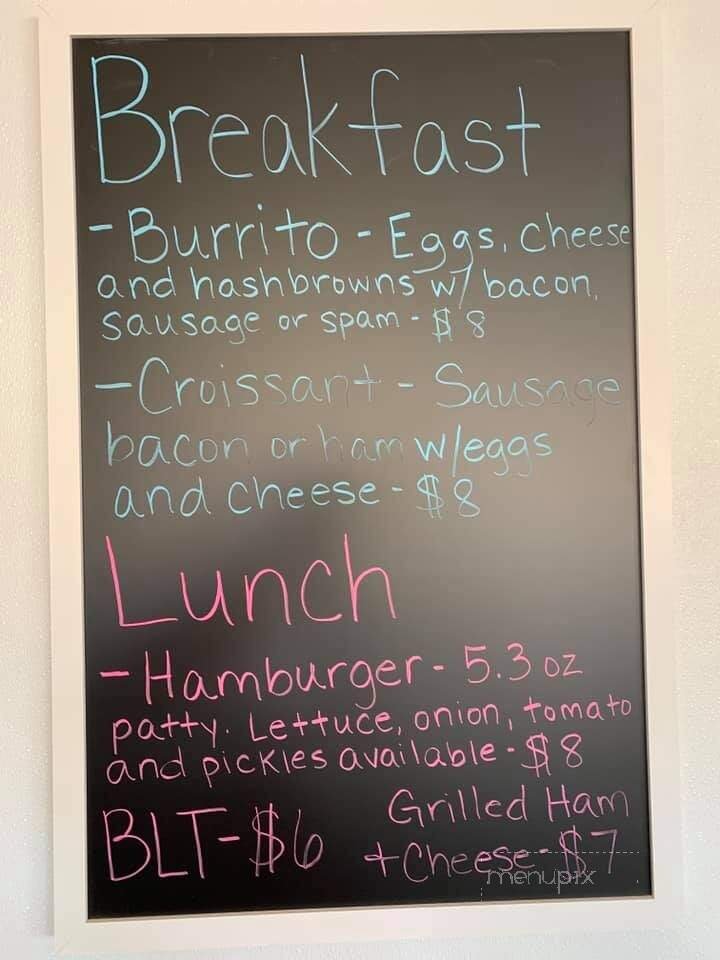 Breakfast
- Burrito - Eggs, cheese
and hashbrowns w/ bacon,
sausage or spam - $8
- Croissant - Sausage
bacon or ham w/eggs
and cheese - $8
Lunch
- Hamburger - 5.3 oz
patty. Lettuce, onion, tomato
and pickles available - $8
BLT - $6
Grilled Ham
+ Cheese - $7
menupix